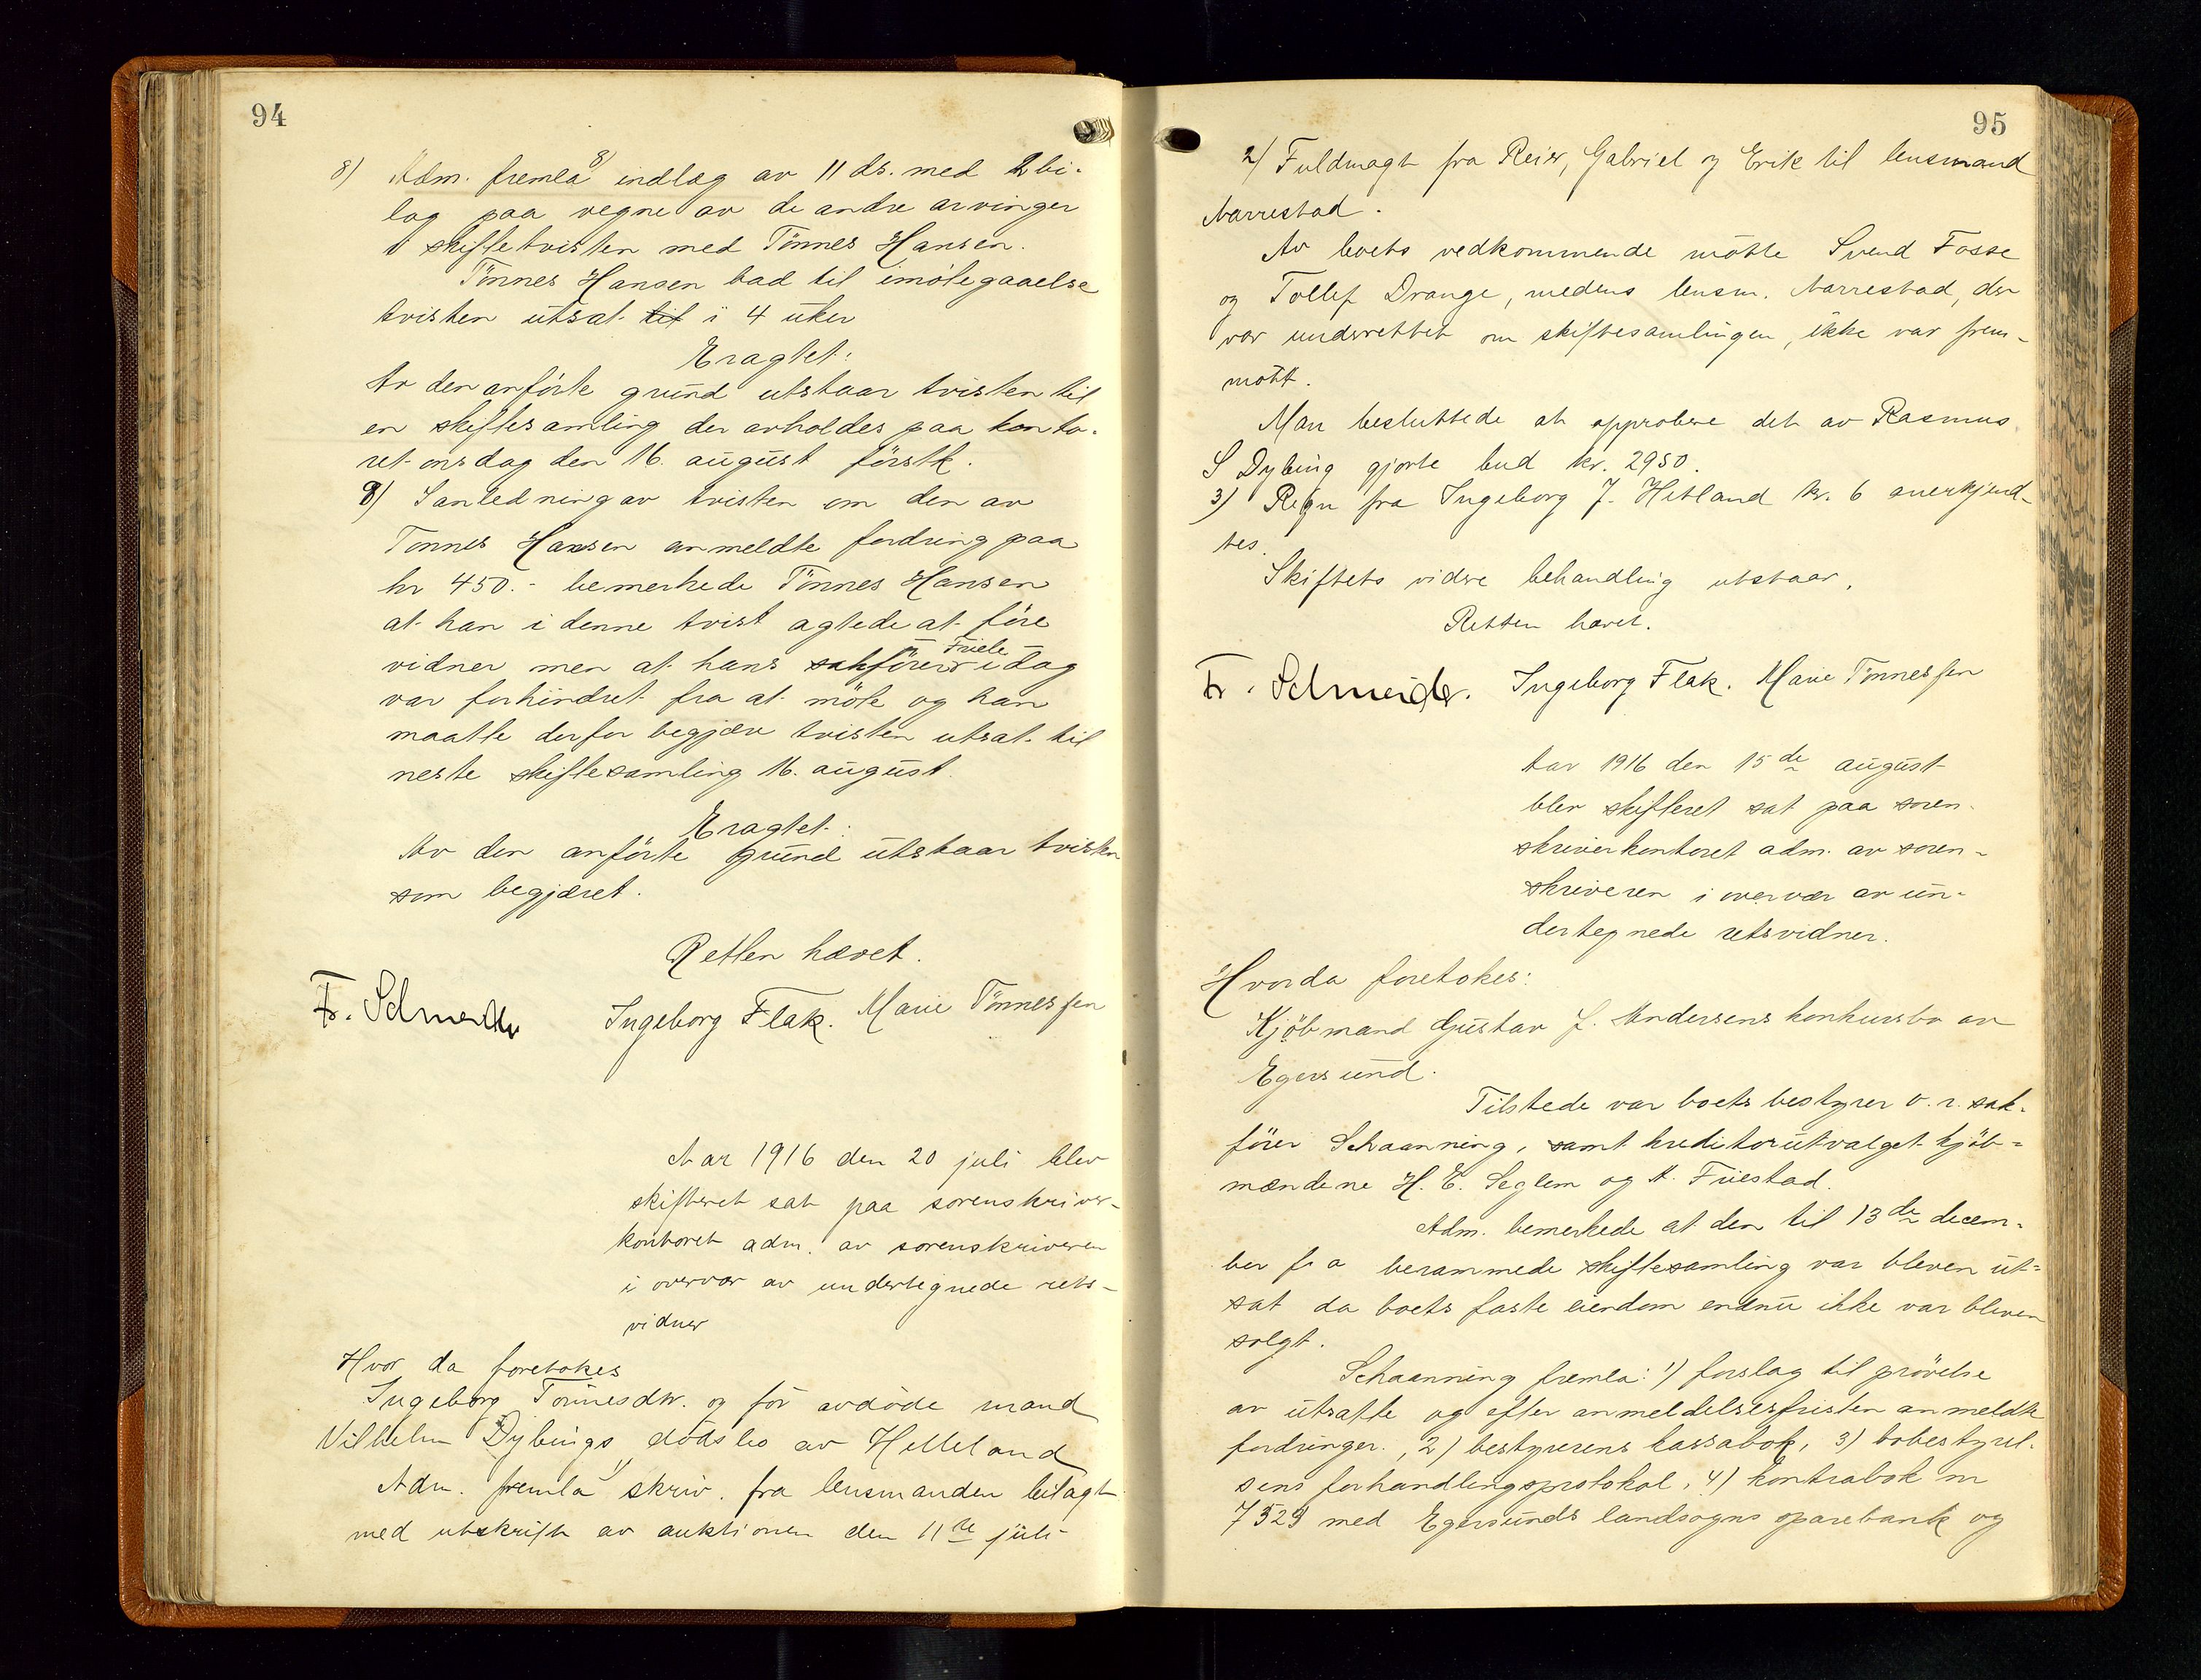 94
8) Adm. fremla 8) indlæg av 11 ds. med 2 bi-
lag paa vegne av de andre arvinger
i skiftetvisten med Tönnes Hansen.
Tönnes Hansen bad til imötegaaelse
tvisten utsat til i 4 uker
Eragtet:
Av den anförte grund utstaar tvisten til
en skiftesamling der avholdes paa konto-
ret onsdag den 16. august förstk.
9) I anledning av tvisten om den av
Tönnes Hansen anmeldte fordring paa
kr 450.- bemerkede Tönnes Hansen
at han i denne tvist agtede at före
vidner men at hans sakförer Friele idag
var forhindret fra at möte og han
maatte derfor begjære tvisten utsat til
neste skiftesamling 16. august.
Eragtet:
Av den anförte grund utstaar tvisten
som begjæret.
Retten hævet.
Fr. Schneider Ingeborg Flak. Marie Tönnessen
Aar 1916 den 20 juli blev
skifteret sat paa sorenskriver-
kontoret adm. av sorenskriveren
i overvær av undertegnede rets-
vidner
Hvor da foretokes
Ingeborg Tönnesdtr. og for avdöde mand
Vilhelm Dybings dödsbo av Helleland
Adm. fremla 1) skriv. fra lensmanden bilagt
med utskrift av auktionen den 11te juli-
95
2) Fuldmagt fra Reier, Gabriel og Erik til lensmand
Narrestad.
Av boets vedkommende mötte Svend Fosse
og Tollef Drange, medens lensm. Narrestad, der
var underrettet om skiftesamlingen, ikke var frem-
mött.
Man besluttede at approbere det av Rasmus
S Dybing gjorte bud kr. 2950.
3) Regn fra Ingeborg J. Hetland kr. 6 anerkjend-
tes.
Skiftets videre behandling utstaar.
Retten hævet.
Fr. Schneider. Ingeborg Flak. Marie Tönnessen
Aar 1916 den 15de august
blev skifteret sat paa soren-
skriverkontoret adm. av soren-
skriveren i overvær av un-
dertegnede retsvidner.
Hvorda foretokes:
Kjöbmand Gustav J. Andersens konkursbo av
Egersund.
Tilstede var boets bestyrer o. r. sak-
förer Schaanning, samt kreditorutvalget kjöb-
mændene H. E. Seglem og A. Fuestad.
Adm. bemerkede at den til 13de decem-
ber f. a berammede skiftesamling var bleven ut-
sat da boets faste eiendom endnu ikke var bleven
solgt.
Schaanning fremla: 1) forslag til prövelse
av utsatte og efter anmeldelsesfristen anmeldte
fordringer, 2) bestyrerens kassabok, 3) bobestyrel-
sens forhandlingsprotokol, 4) kontrabok nr
7529 med Egersunds landsogns sparebank og